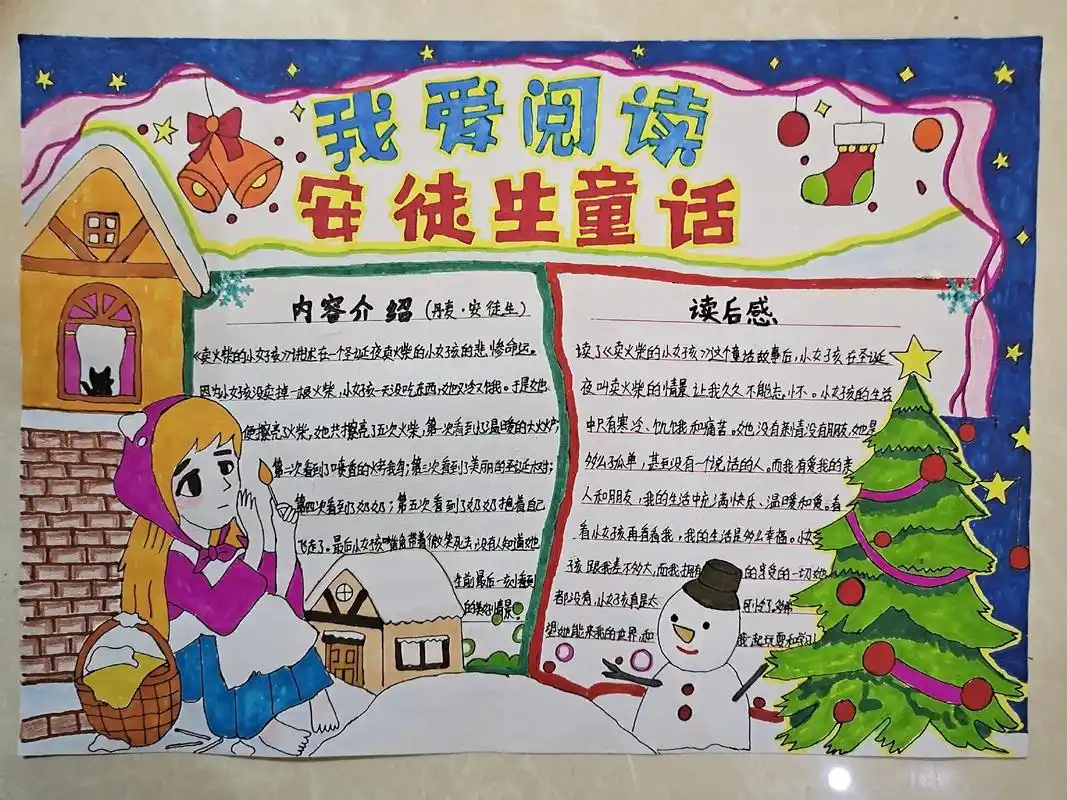 我爱阅读
安徒生童话
内容介绍(丹麦·安徒生)
《卖火柴的小女孩》讲述在一个圣诞夜卖火柴的小女孩的悲惨命运。
因为小女孩没卖掉一根火柴,小女孩一天没吃东西,她又冷又饿。于是她
便擦亮了火柴,她共擦亮了五次火柴,第一次看到了温暖的大火炉;
第二次看到了喷香的烤鹅;第三次看到了美丽的圣诞树;
第四次看到了奶奶;第五次看到了奶奶抱着自己
飞走了。最后小女孩嘴角带着微笑死去,没有人知道她
生前最后一刻看到
的美好情景。
读后感
读了《卖火柴的小女孩》这个童话故事后,小女孩在圣诞
夜叫卖火柴的情景让我久久不能忘怀。小女孩的生活
中只有寒冷、饥饿和痛苦。她没有亲情没有朋友,她是
多么孤单,甚至没有一个说话的人。而我有爱我的亲
人和朋友,我的生活中充满快乐、温暖和爱。看
看小女孩再看看我,我的生活是多么幸福。小女
孩跟我差不多大,而我拥有 的享受的一切她
都没有,小女孩真是太 可怜了。多希
望她能来我的世界,和 我一起玩耍和学习!